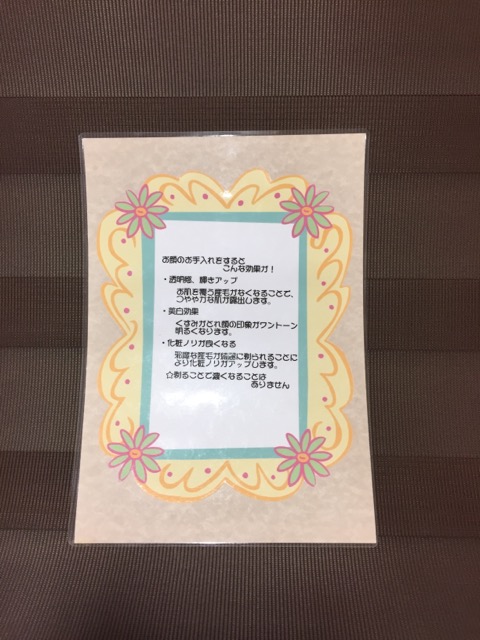 お顔のお手入れをすると
こんな効果が！
・透明感、輝きアップ
お肌を覆う産毛がなくなることで、
つややかな肌が露出します。
・美白効果
くすみがとれ顔の印象がワントーン
明るくなります。
・化粧ノリが良くなる
邪魔な産毛が確実に剃られることに
より化粧ノリがアップします。
☆剃ることで濃くなることは
ありません